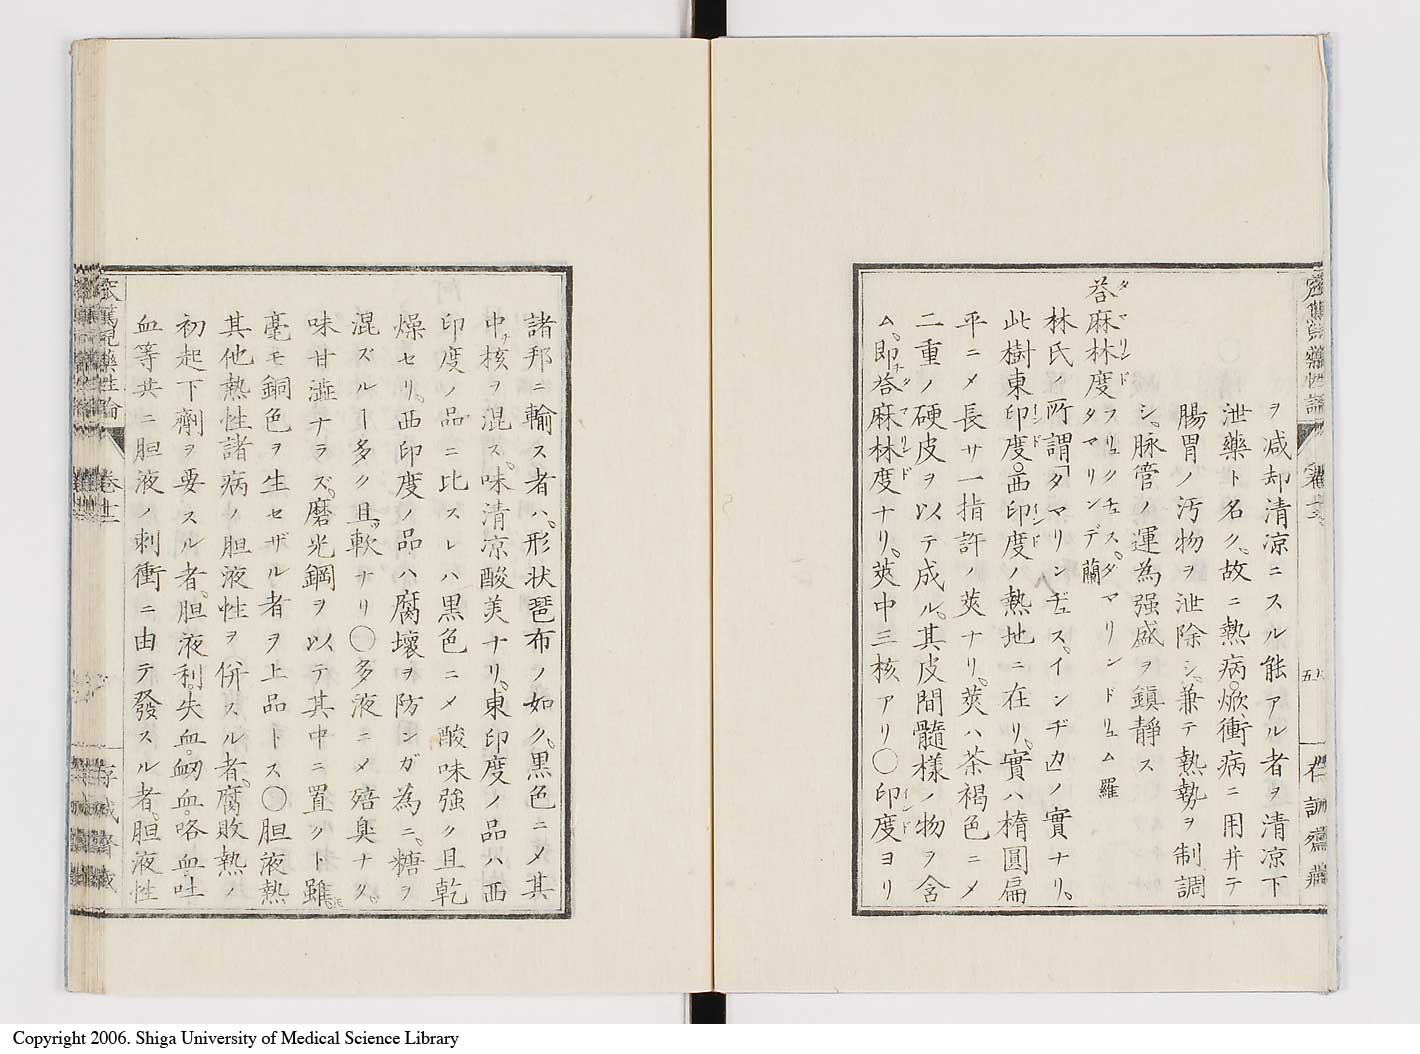 ヲ減却清涼ニスル能アル者ヲ清涼下
泄藥ト名ク。故ニ熱病。焮衝病ニ用并テ
腸胃ノ汚物ヲ泄除シ。兼テ熱勢ヲ制調
シ。脉管ノ運為强盛ヲ鎮靜ス
荅麻林度 フリュクチュス。ダマリンドリュム 羅 タマリンデ 蘭
林氏ノ所謂「タマリンヂュス。インヂカ」ノ實ナリ。
此樹東印度。西印度ノ熱地ニ在リ。實ハ楕圓扁
平ニメ長サ一指許ノ莢ナリ。莢ハ茶褐色ニメ
二重ノ硬皮ヲ以テ成ル。其皮間髓様ノ物ヲ含
ム。即荅麻林度ナリ。莢中三核アリ〇印度ヨリ
諸邦ニ輸ス者ハ。形状琶布ノ如ク。黒色ニメ其
中ナ核ヲ混ス。味清涼酸美ナリ。東印度ノ品ハ西
印度ノ品ニ比スレハ黒色ニメ酸味強ク且乾
燥セリ。西印度ノ品ハ腐壞ヲ防ンガ為ニ。糖ヲ
混ズルー多ク。且ツ軟ナリ〇多液ニメ殕臭ナク。
味甘澁ナラズ。磨光鋼ヲ以テ其中ニ置クト雖モ。
毫モ銅色ヲ生セザル者ヲ上品トス〇胆液熱
其他熱性諸病ノ胆液性ヲ併スル者。腐敗熱ノ
初起下劑ヲ要スル者。胆液利。失血。衂血。咯血。吐
血等共ニ胆液ノ刺衝ニ由テ發スル者。胆液性
Copyright 2006. Shiga University of Medical Science Library